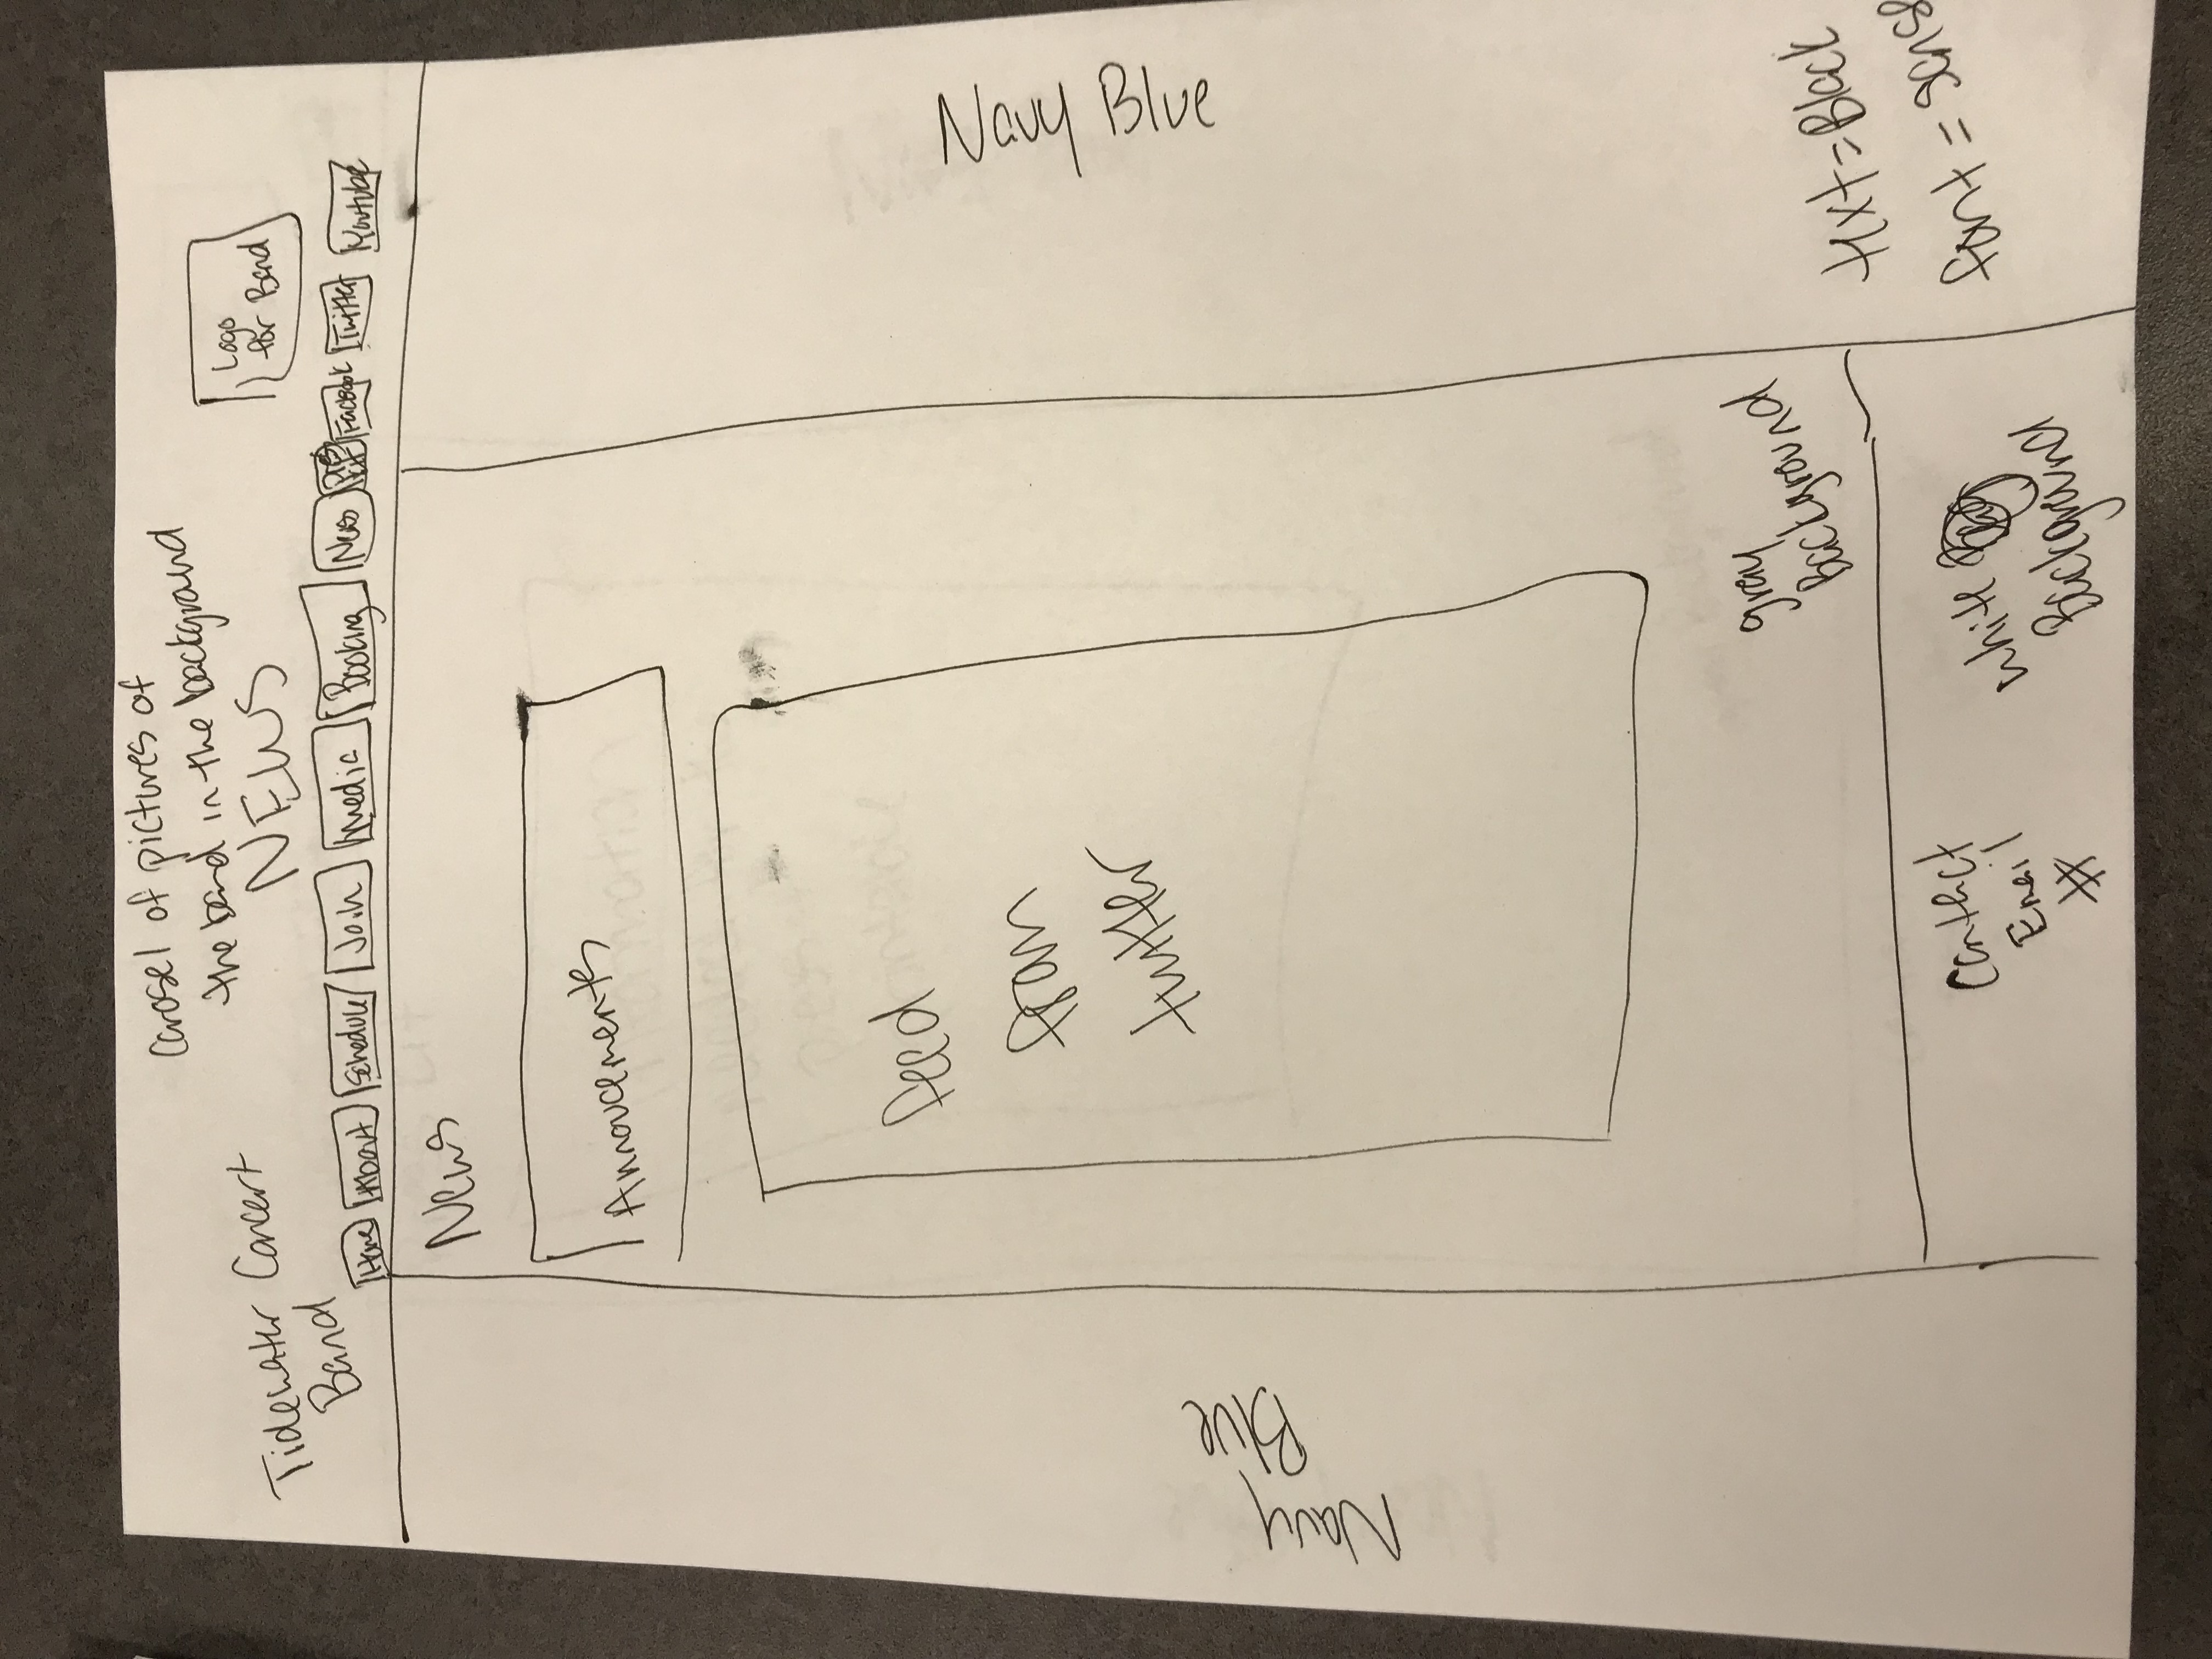 Carosel of pictures of
the band in the background
NEWS
Tidewater Concert
Band
Logo
for Band
Home About Schedule Join Media Booking News Facebook Twitter Youtube
News
Annoucements
feed
from
twitter
Navy
Blue
Navy Blue
gray
Background
text=Black
font = sans
Contact
Email
#
white
Background